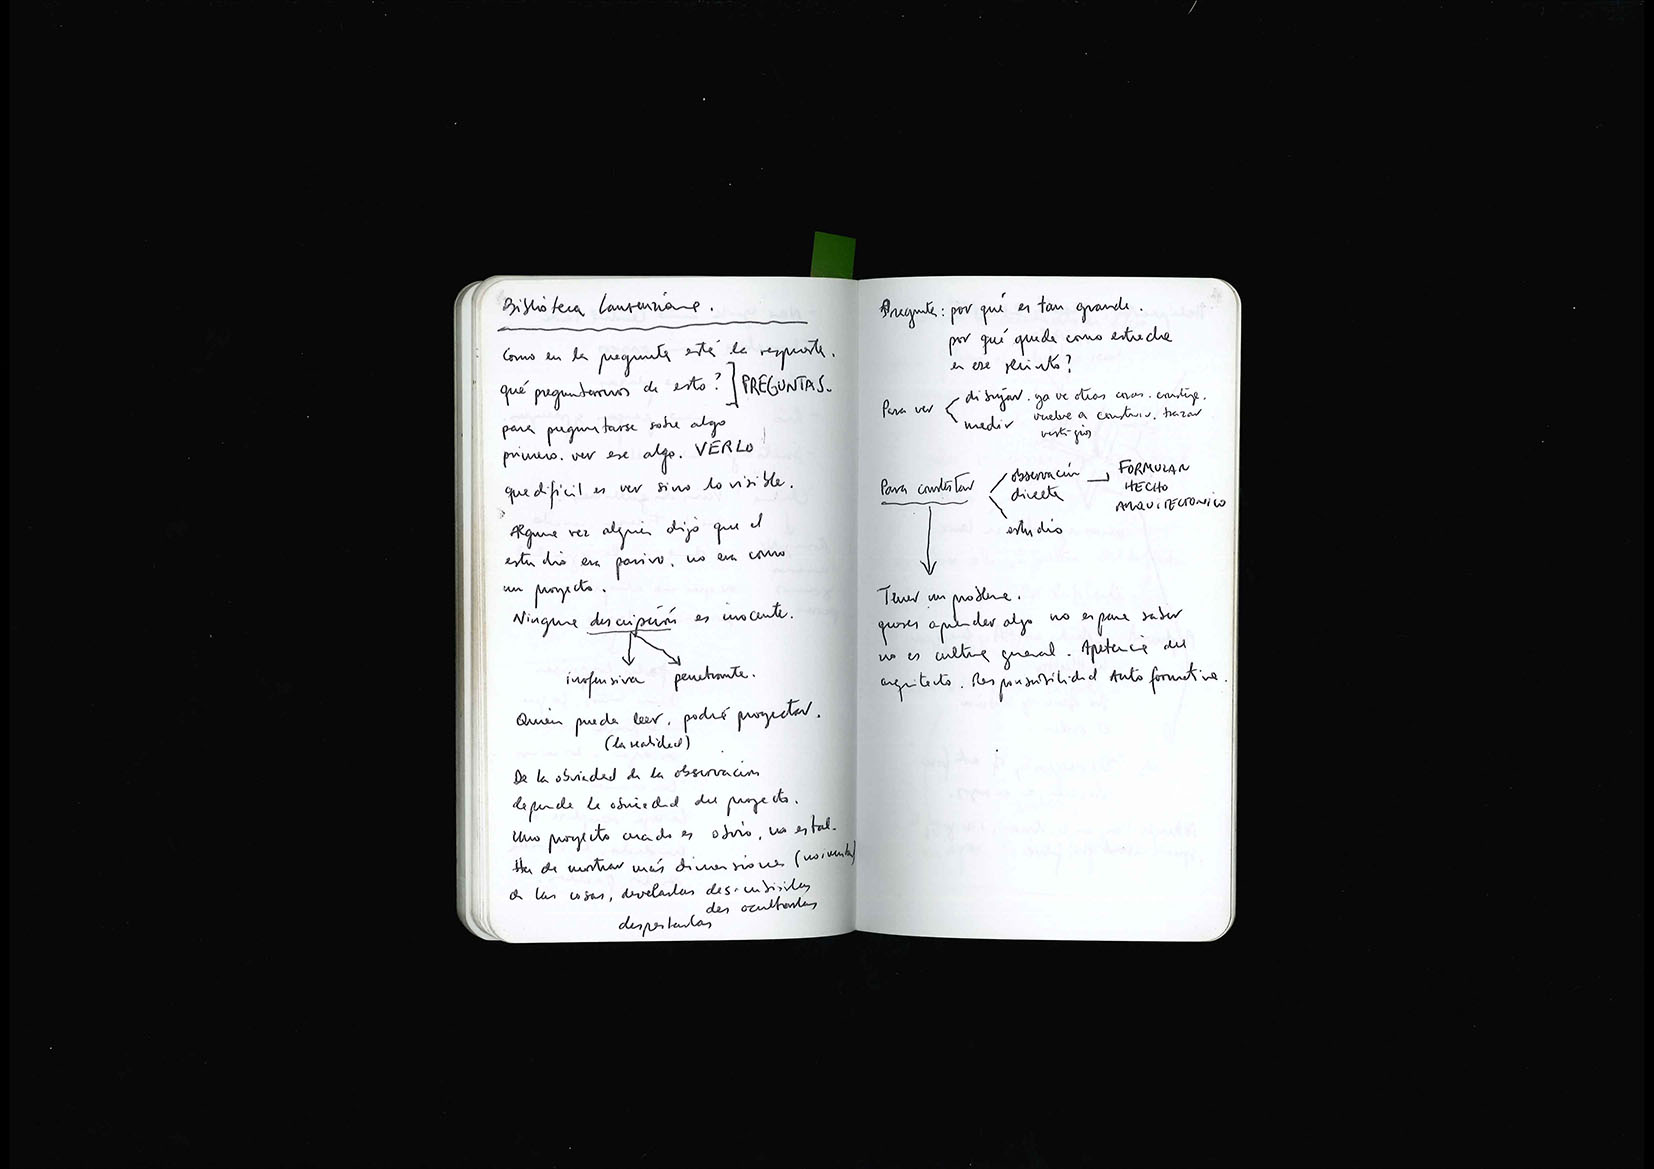 Biblioteca Laurenziana.
Como en la pregunta está la respuesta.
qué preguntarnos de esto? ] PREGUNTAS.
para preguntarse sobre algo
primero. ver ese algo. VERLO
que dificil es ver sino lo visible.
Alguna vez alguien dijo que el
estudio era pasivo, no era como
un proyecto.
Ninguna descripción es inocente.
inofensiva penetrante.
Quien pueda leer, podrá proyectar.
(la realidad)
De la obviedad de la observación
depende la obviedad del proyecto.
Uno proyecto cuado es obvio, no es tal.
Ha de mostrar más dimensiones (no inventa)
de las cosas, develarlas des-
des ocultarlas
despertarlas
Pregunta: por qué es tan grande.
por qué queda como estrecha
en ese recinto?
Para ver dibujar. ya ve otras cosas. corrige.
medir vuelve a construir. trazar
vestigios
Para contestar observación FORMULAR
directa HECHO
ARQUITECTONICO
estudio
Tener un problema.
querer aprender algo no es para saber
no es cultura general. Apetencia del
arquitecto. Responsabilidad Auto formativa.